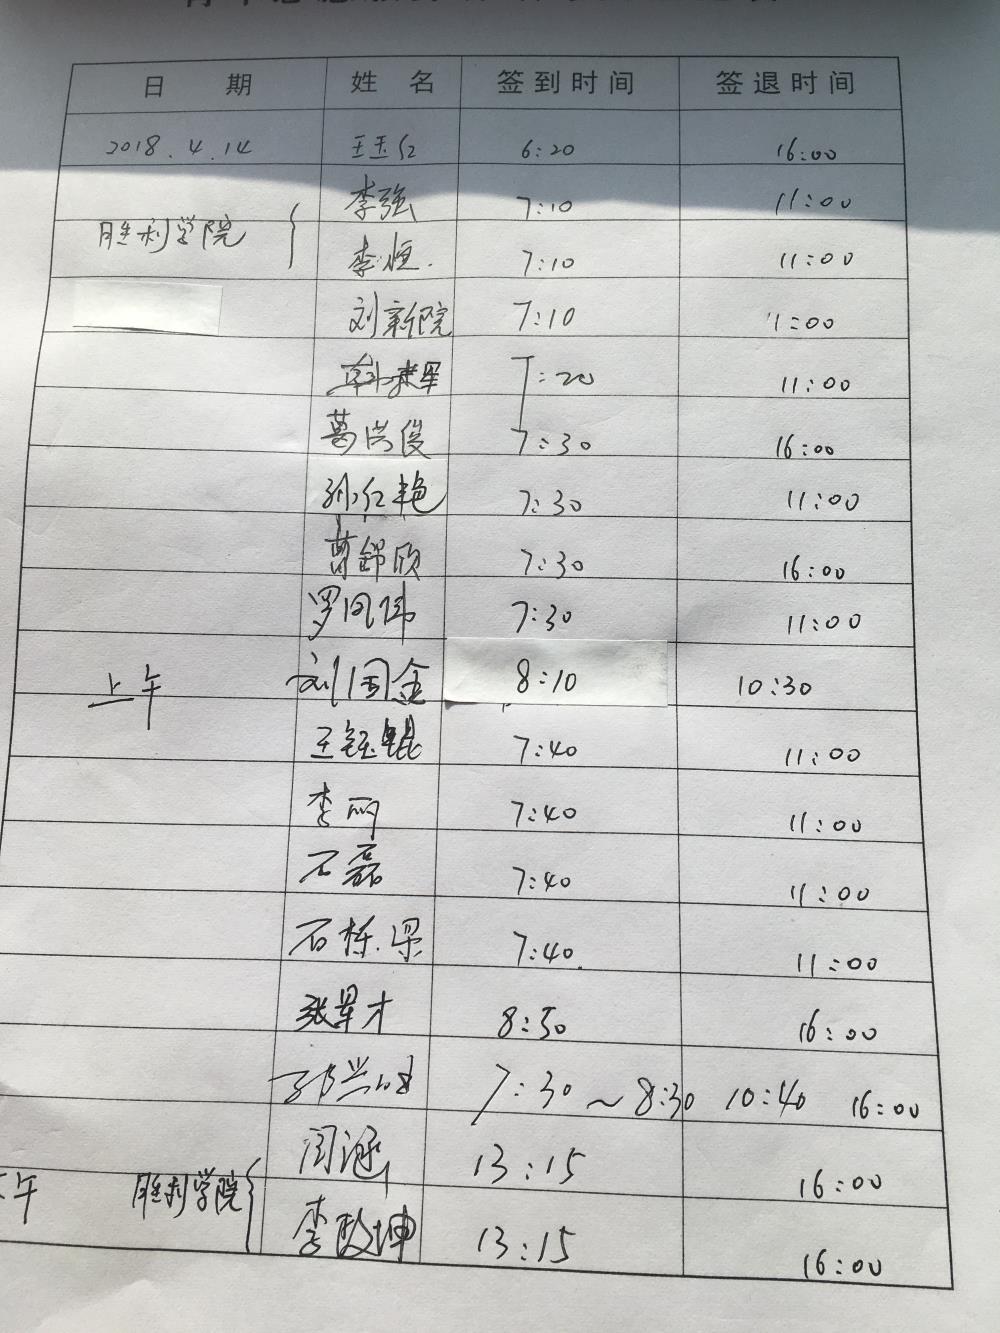 日 期 姓 名 签到时间 签退时间
2018.4.14 王玉红 6:20 16:00
李强 7:10 11:00
胜利学院 李恒. 7:10 11:00
刘新院 7:10 11:00
7:20 11:00
葛洪俊 7:30 16:00
孙红艳 7:30 11:00
葛锦欣 7:30 16:00
罗凤伟 7:30 11:00
上午 刘国金 8:10 10:30
王钰锟 7:40 11:00
李丽 7:40 11:00
石磊 7:40 11:00
石栋梁 7:40 11:00
张军才 8:50 16:00
7:30~8:30 10:40 16:00
闫涵 13:15 16:00
下午 胜利学院 李政坤 13:15 16:00